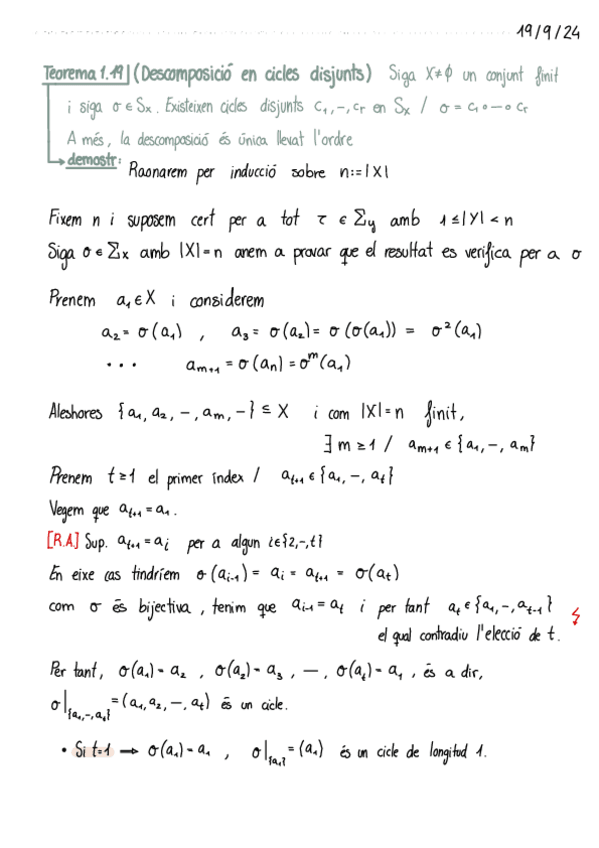 19/9/24
Teorema 1.19 (Descomposició en cicles disjunts) Siga X≠∅ un conjunt finit
i siga σ ∈ Sx. Existeixen cicles disjunts C₁,–,Cr en Sx / σ = C₁∘–∘Cr
A més, la descomposició és única llevat l'ordre
demostr: Raonarem per inducció sobre n:=|X|
Fixem n i suposem cert per a tot τ ∈ Σy amb 1≤|Y|<n
Siga σ ∈ Σx amb |X|=n anem a provar que el resultat es verifica per a σ
Prenem a₁∈X i considerem
a₂ = σ(a₁) , a₃ = σ(a₂) = σ(σ(a₁)) = σ²(a₁)
··· aₘ₊₁ = σ(aₙ) = σᵐ(a₁)
Aleshores {a₁, a₂, –, aₘ, –} ⊆ X i com |X|=n finit,
∃ m ≥ 1 / aₘ₊₁ ∈ {a₁, –, aₘ}
Prenem t≥1 el primer índex / aₜ₊₁ ∈ {a₁, –, aₜ}
Vegem que aₜ₊₁ = a₁.
[R.A] Sup. aₜ₊₁ = aᵢ per a algun i∈{2,–,t}
En eixe cas tindríem σ(aᵢ₋₁) = aᵢ = aₜ₊₁ = σ(aₜ)
com σ és bijectiva, tenim que aᵢ₋₁ = aₜ i per tant aₜ ∈ {a₁, –, aₜ₋₁} ↯
el qual contradiu l'elecció de t.
Per tant, σ(a₁) = a₂ , σ(a₂) = a₃ , –, σ(aₜ) = a₁ , és a dir,
σ|{a₁,–,aₜ} = (a₁, a₂, –, aₜ) és un cicle.
• Si t=1 → σ(a₁) = a₁ , σ|{a₁} = (a₁) és un cicle de longitud 1.